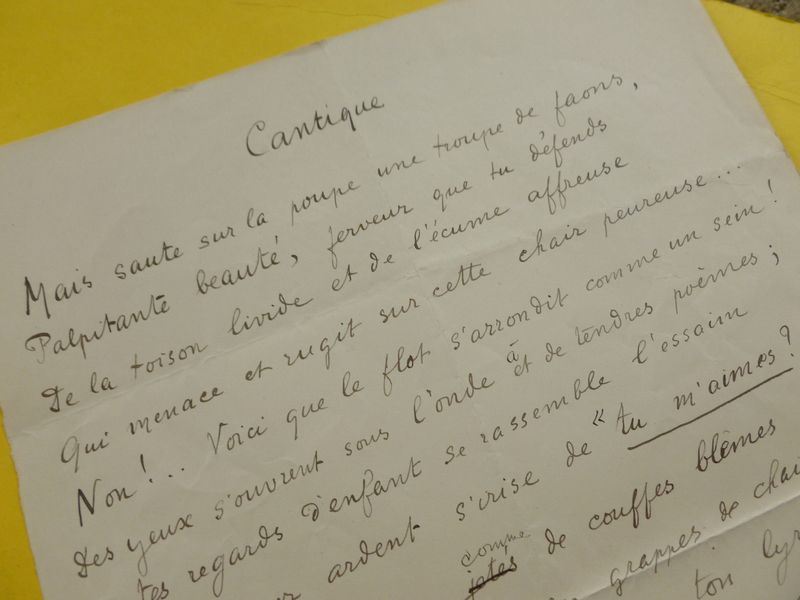 Cantique
Mais saute sur la poupe une troupe de faons,
Palpitante beauté, ferveur que tu défends
De la toison livide et de l'écume affreuse
Qui menace et rugit sur cette chair peureuse...
Non!.. Voici que le flot s'arrondit comme un sein!
Des yeux s'ouvrent sous l'onde à et de tendres poèmes;
tes regards d'enfant se rassemble l'essaim
ardent s'irise de « tu m'aimes?
comme
jetés de couffes blêmes
grappes de chai
ton lyr